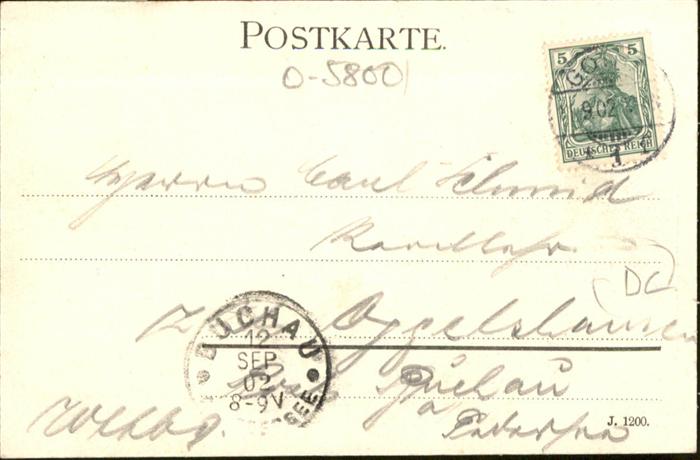 POSTKARTE.
0-5800
5 5
GO
9.02
DEUTSCHES REICH
1
Herrn Carl Schmid
DC
z. Oggelshausen
BUCHAU
12
SEP
02
8-9V
SEE
Buchau
a
Federsee
Wttbg.
J. 1200.